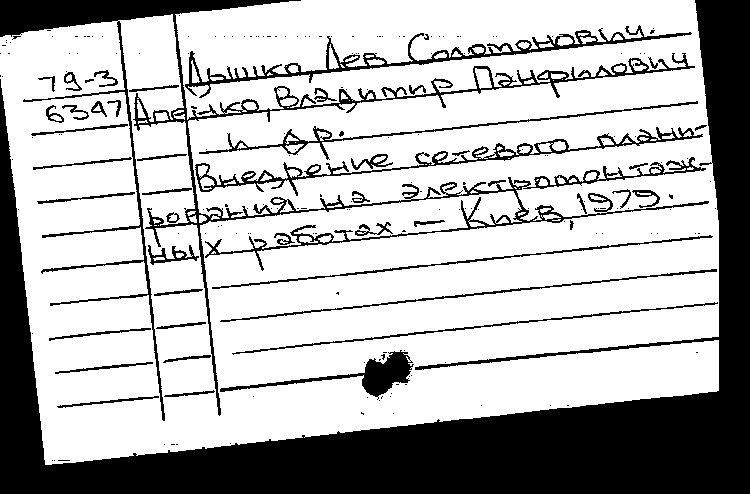 79-3 Дышко, Лев Соломонович.
6347 Апенко, Владимир Панфилович
и др.
Внедрение сетевого плани-
рования на электромонтаж-
ных работах. — Киев, 1979.